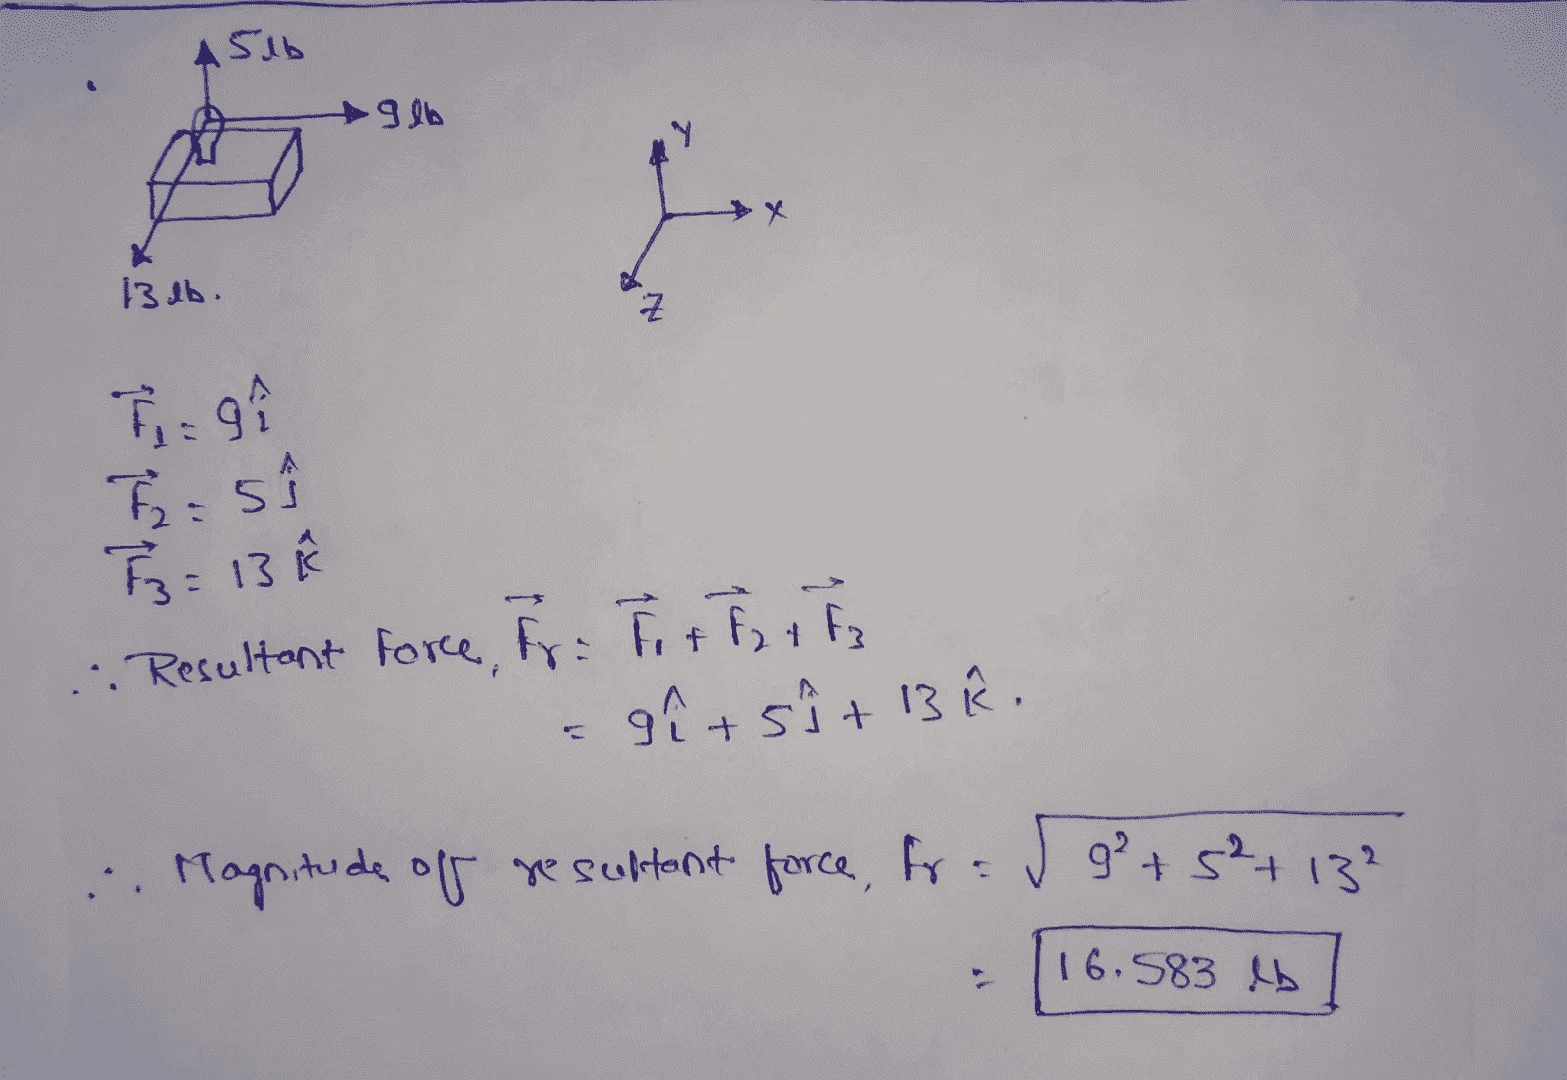 5 lb
9 lb
13 lb.
Y
X
Z
F⃗₁ = 9î
F⃗₂ = 5ĵ
F⃗₃ = 13 k̂
∴ Resultant force, F⃗r = F⃗₁ + F⃗₂ + F⃗₃
= 9î + 5ĵ + 13 k̂.
∴ Magnitude off resultant force, Fr = √(9² + 5² + 13²)
= 16.583 lb